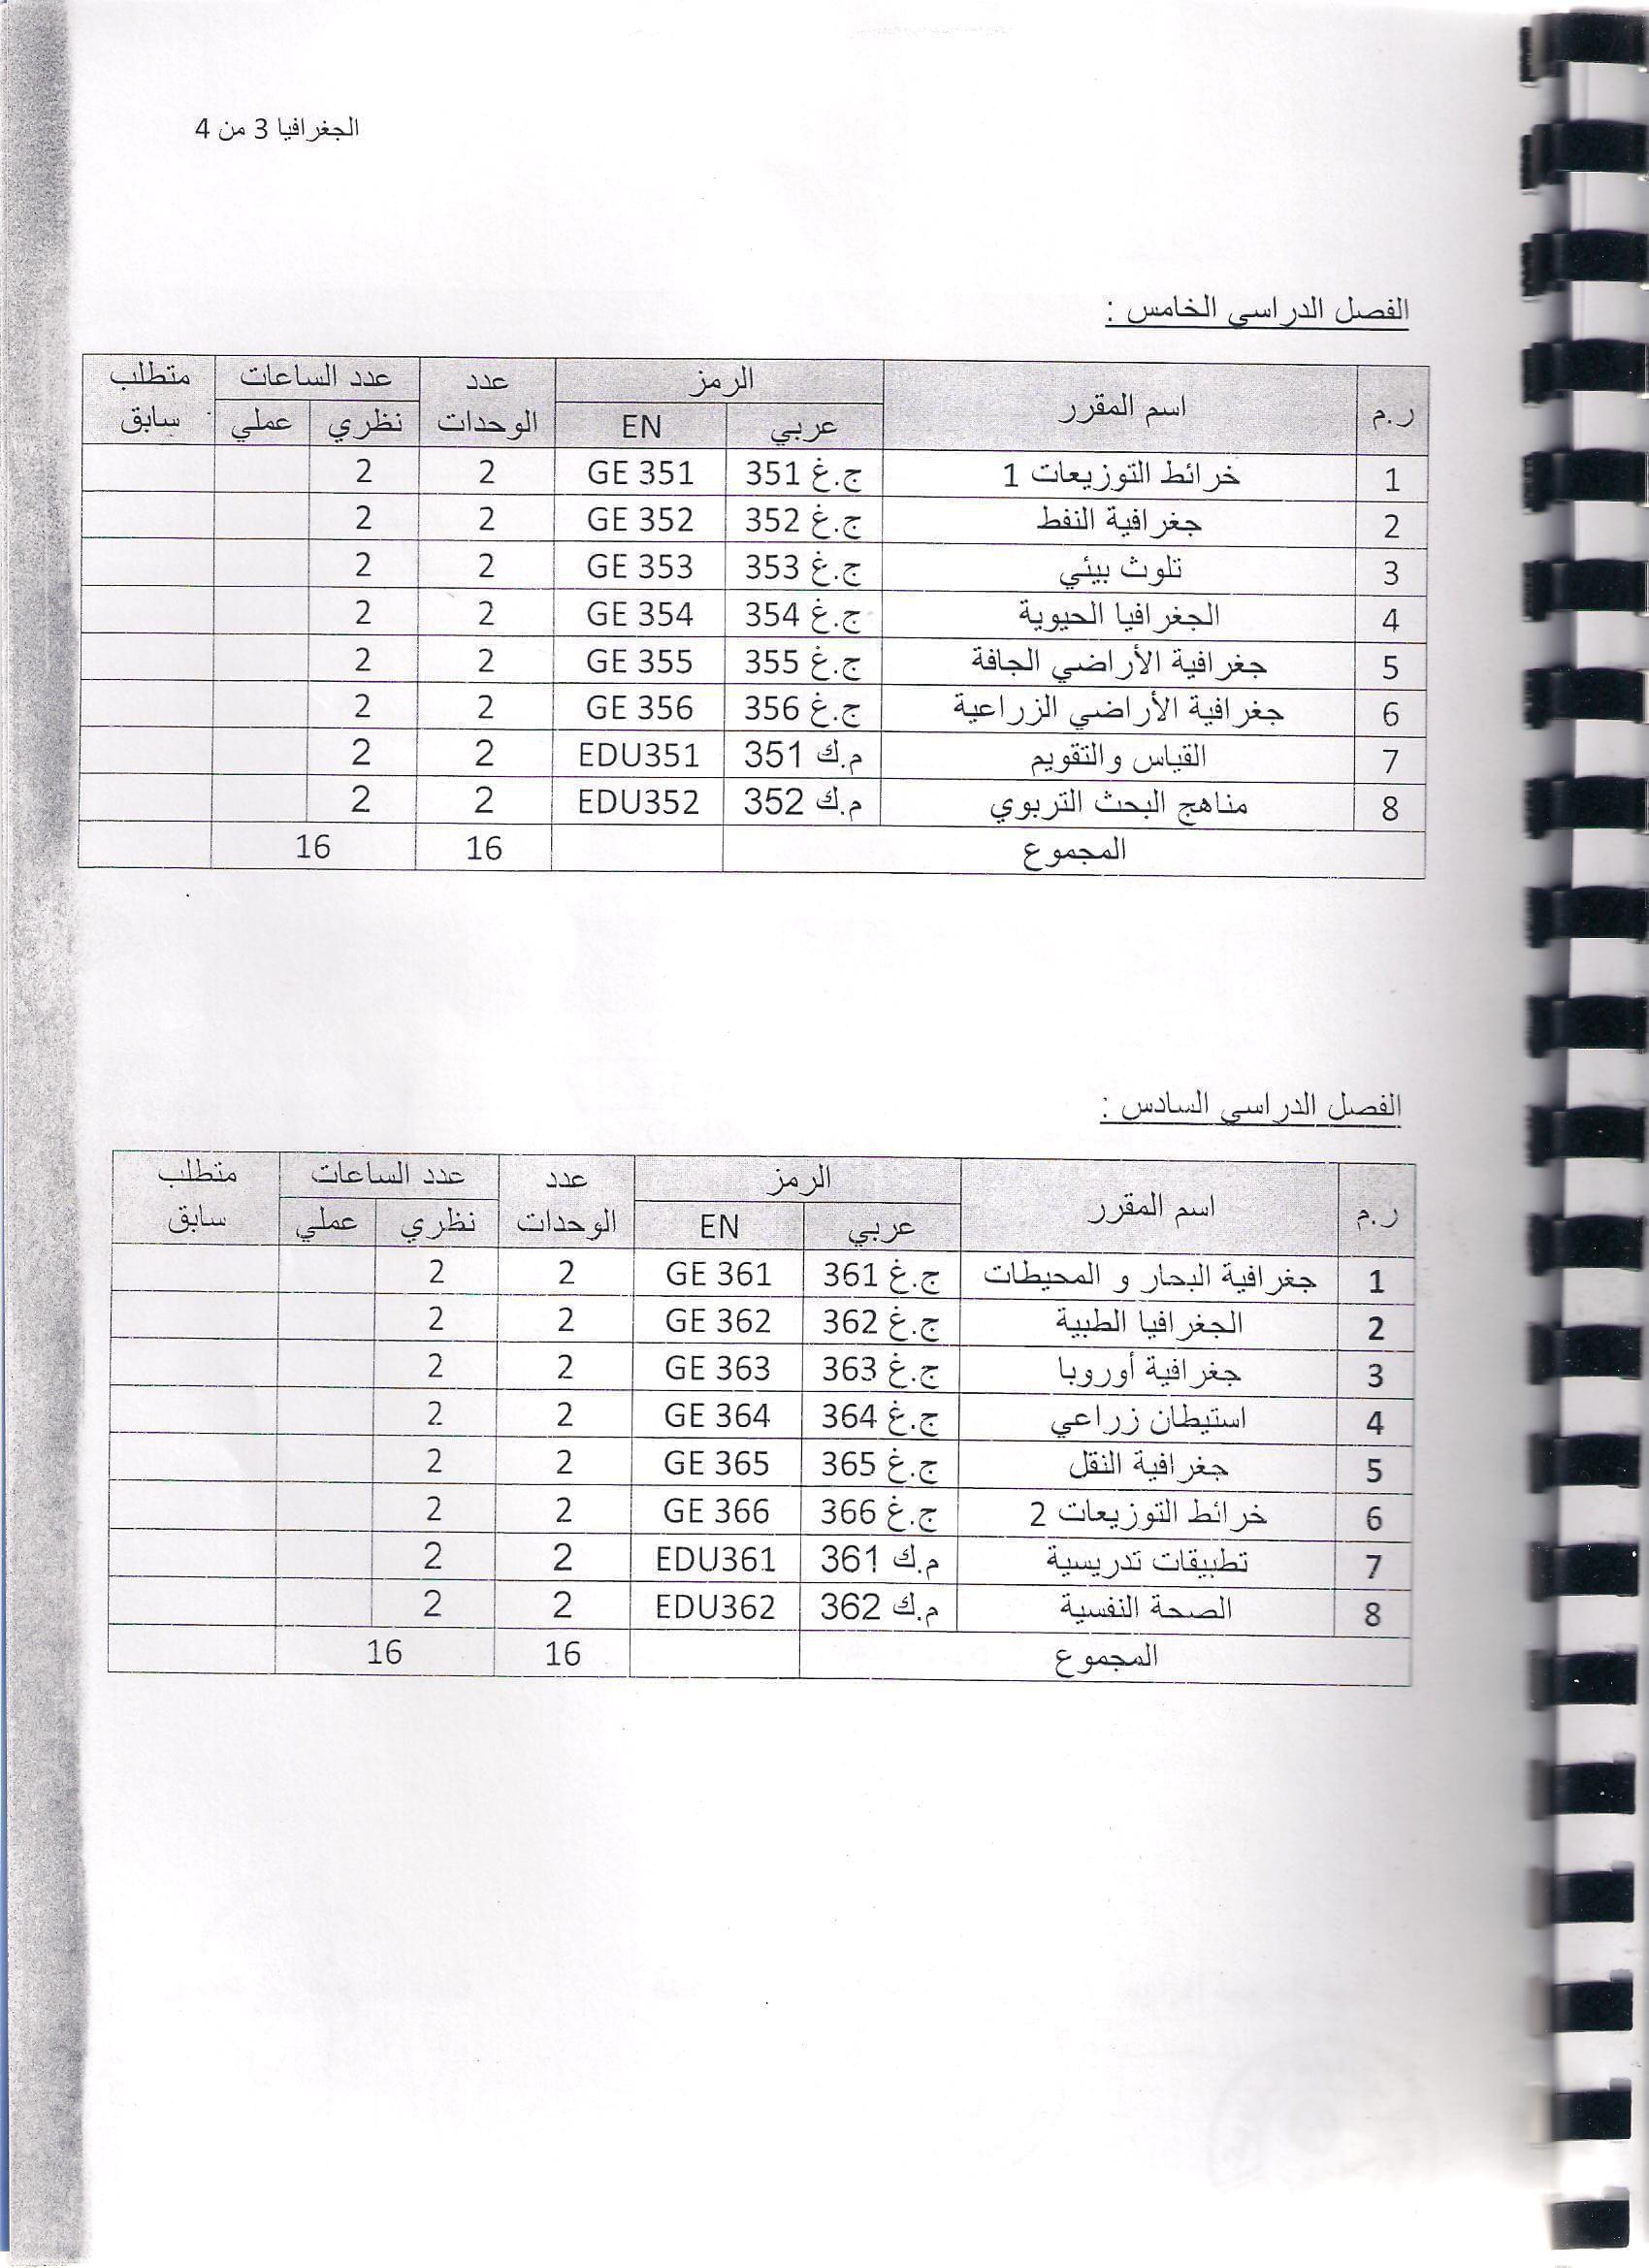 الجغرافيا 3 من 4
الفصل الدراسي الخامس :
ر.م اسم المقرر الرمز عدد الوحدات عدد الساعات متطلب سابق
عربي EN نظري عملي
1 خرائط التوزيعات 1 ج.غ 351 GE 351 2 2
2 جغرافية النفط ج.غ 352 GE 352 2 2
3 تلوث بيئي ج.غ 353 GE 353 2 2
4 الجغرافيا الحيوية ج.غ 354 GE 354 2 2
5 جغرافية الأراضي الجافة ج.غ 355 GE 355 2 2
6 جغرافية الأراضي الزراعية ج.غ 356 GE 356 2 2
7 القياس والتقويم م.ك 351 EDU351 2 2
8 مناهج البحث التربوي م.ك 352 EDU352 2 2
المجموع 16 16
الفصل الدراسي السادس :
ر.م اسم المقرر الرمز عدد الوحدات عدد الساعات متطلب سابق
عربي EN نظري عملي
1 جغرافية البحار و المحيطات ج.غ 361 GE 361 2 2
2 الجغرافيا الطبية ج.غ 362 GE 362 2 2
3 جغرافية أوروبا ج.غ 363 GE 363 2 2
4 استيطان زراعي ج.غ 364 GE 364 2 2
5 جغرافية النقل ج.غ 365 GE 365 2 2
6 خرائط التوزيعات 2 ج.غ 366 GE 366 2 2
7 تطبيقات تدريسية م.ك 361 EDU361 2 2
8 الصحة النفسية م.ك 362 EDU362 2 2
المجموع 16 16